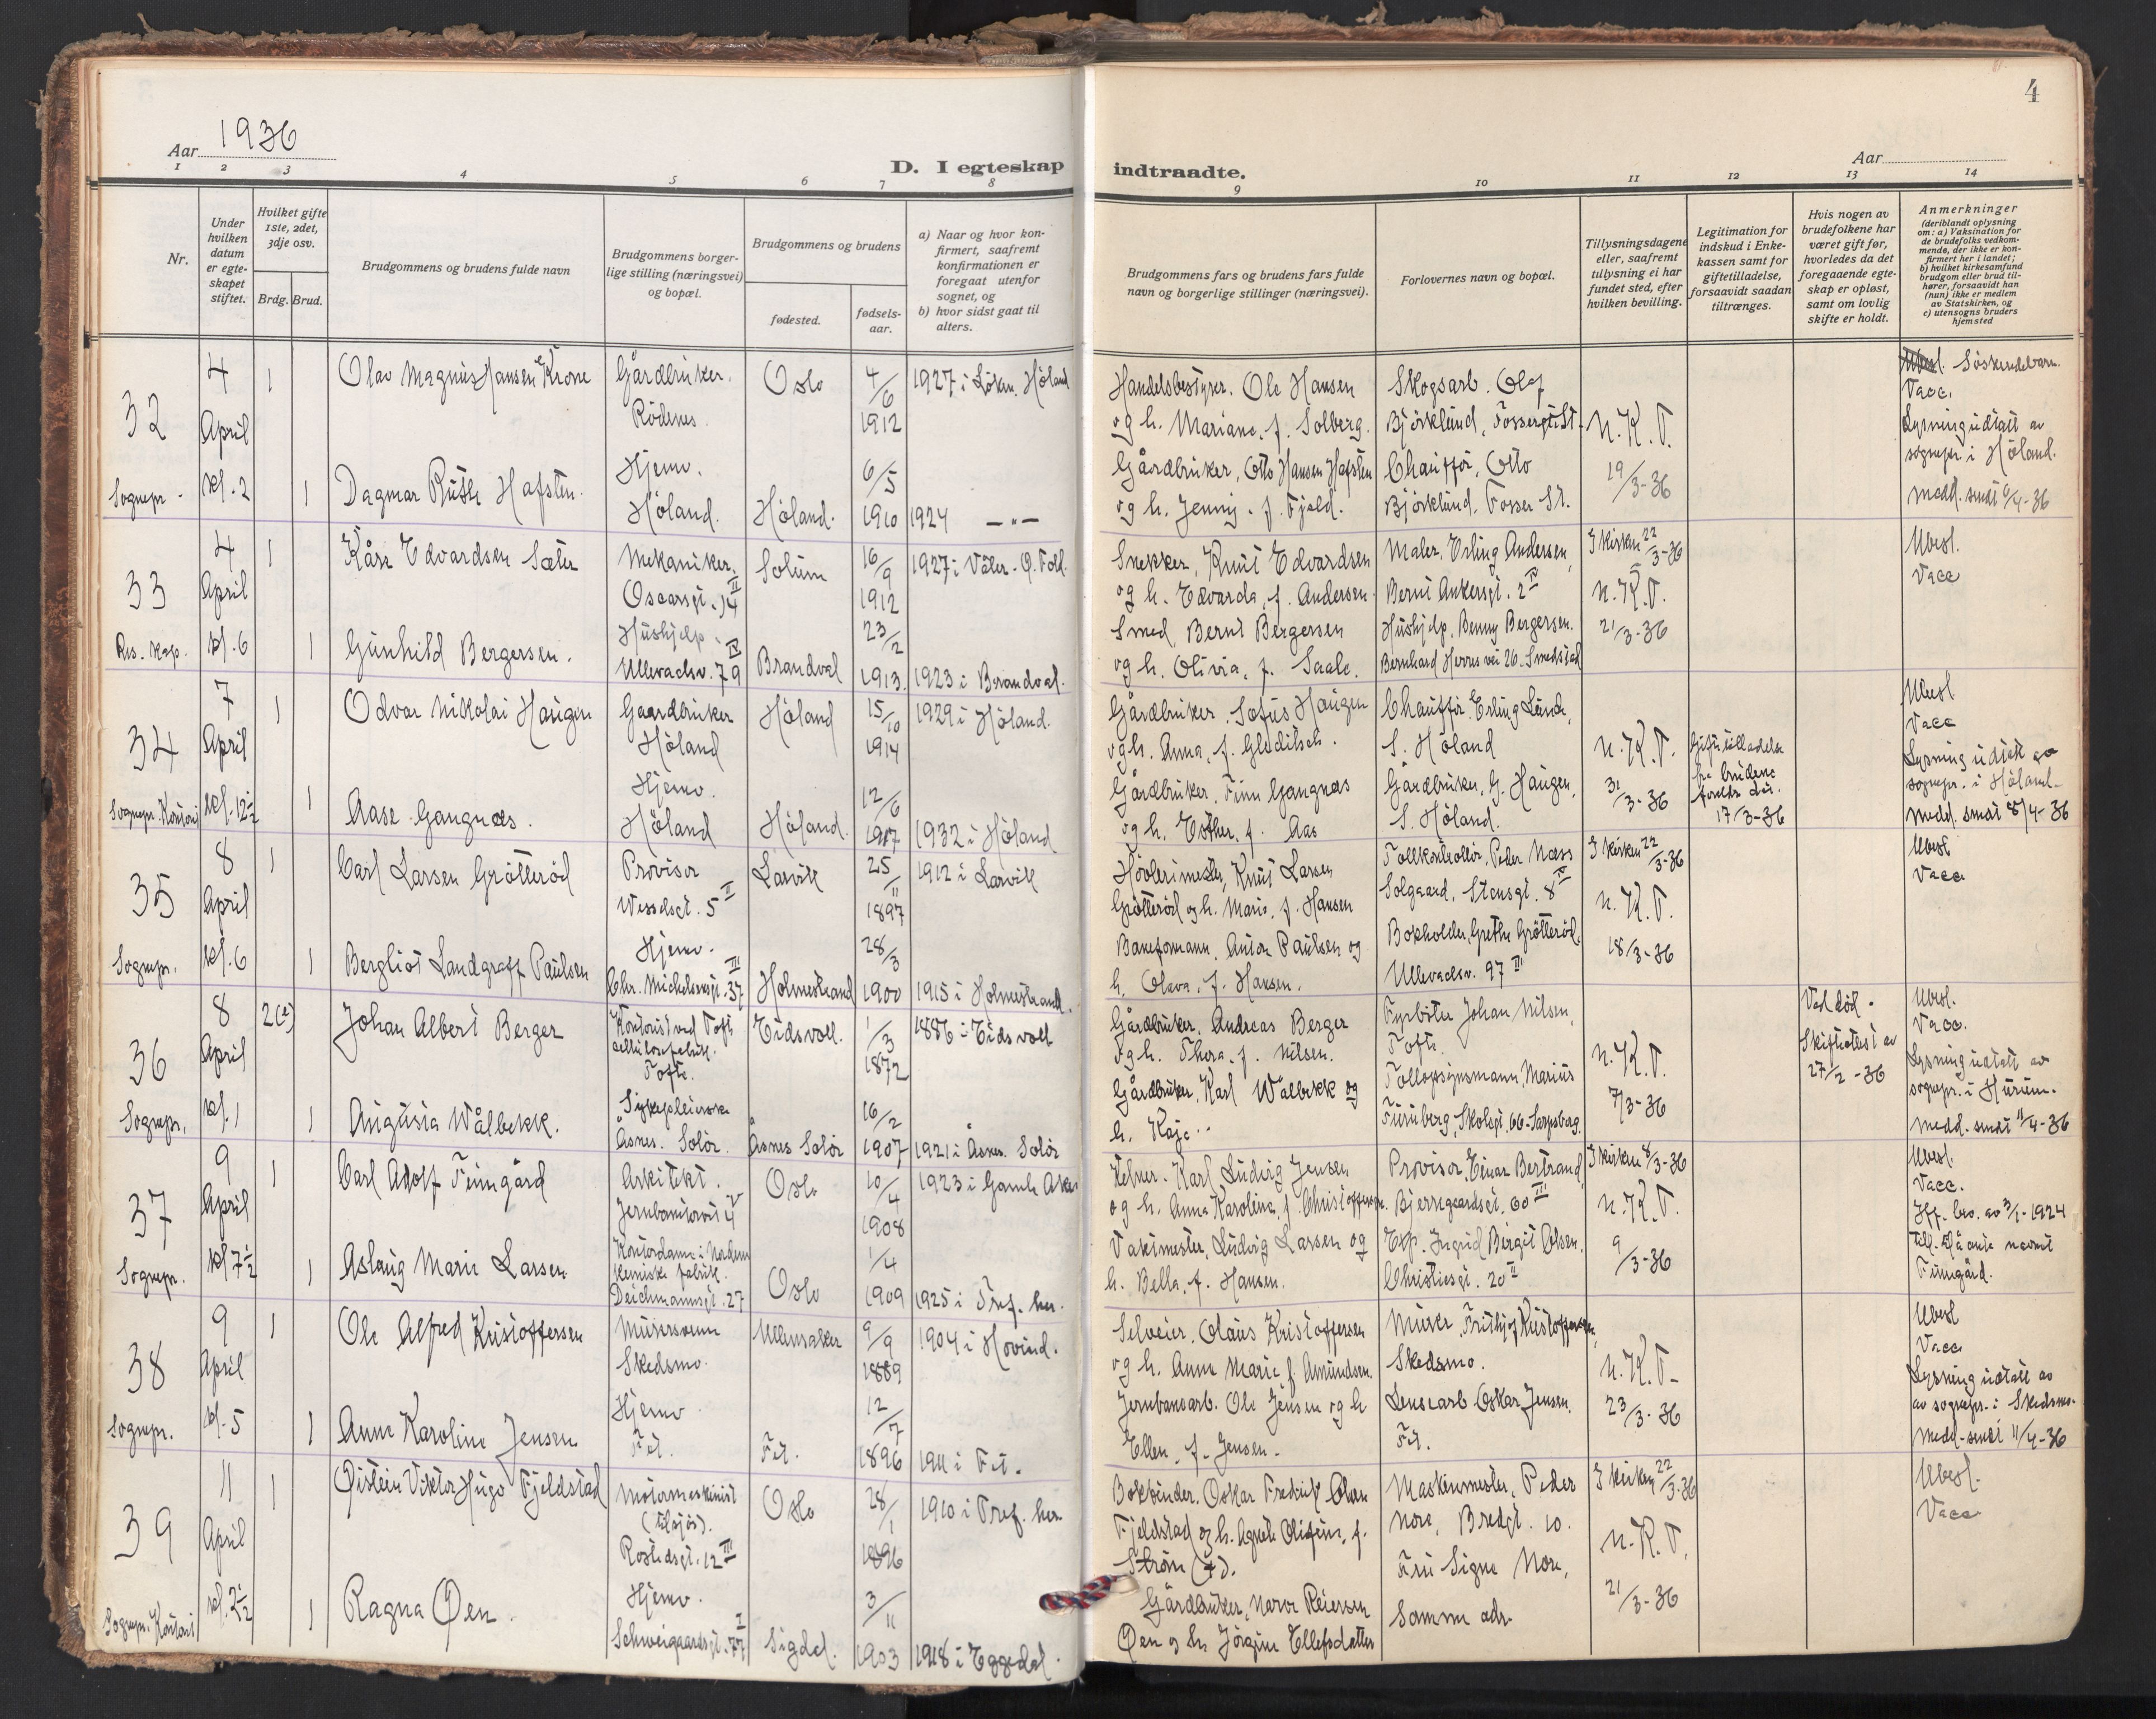 4
Aar 1936
Aar
D. I egteskap indtraadte.
1 2 3 4 5 6 7 8 9 10 11 12 13 14
Nr.
Under hvilken datum er egte-skapet stiftet.
Hvilket gifte 1ste, 2det, 3dje osv.
Brdg. Brud.
Brudgommens og brudens fulde navn
Brudgommens borger-lige stilling (næringsvei) og bopæl.
Brudgommens og brudens
fødested.
fødsels-aar.
a) Naar og hvor kon-firmert, saafremt konfirmationen er foregaat utenfor sognet, og
b) hvor sidst gaat til alters.
Brudgommens fars og brudens fars fulde navn og borgerlige stillinger (næringsvei).
Forlovernes navn og bopæl.
Tillysningsdagene eller, saafremt tillysning ei har fundet sted, efter hvilken bevilling.
Legitimation for indskud i Enke-kassen samt for giftetilladelse, forsaavidt saadan tiltrænges.
Hvis nogen av brudefolkene har været gift før, hvorledes da det foregaaende egte-skap er opløst, samt om lovlig skifte er holdt.
Anmerkninger (deriblandt oplysning om: a) Vaksination for de brudefolks vedkom-mende, der ikke er kon-firmert her i landet; b) hvilket kirkesamfund brudgom eller brud til-hører, forsaavidt han (hun) ikke er medlem av Statskirken, og c) utensogns bruders hjemsted
32 Sognepr. 4 April kl. 2
1 Olav Magnus Hansen Krone Gårdbruker. Rödenes Oslo 4/6 1912 1927 i Löken. Höland
1 Dagmar Ruth Hafsten. Hjemv. Höland. Höland. 6/5 1910 1924 —"—
Handelsbestyrer. Ole Hansen
og h. Mariane, f. Solberg.
Gårdbruker, Otto Hansen Hafsten
og h. Jenny. f. Fjeld.
Skogsarb. Olaf
Björklund, Fosser St.
Chauffør, Otto
Björklund, Fosser St.
N.K.T.
19/3-36
Söskendebarn.
Vacc.
Lysning utstatt av
sognepr. i Höland.
medd. sendt 6/4-36
33 Res. kap. 4 April kl. 6
1 Kåre Edvardsen Sæter Mekaniker. Oscarsgt. 14 II Solum 16/9 1912 1927 i Våler. Ø. Fold.
1 Gunhild Bergersen. Hushjelp. Ullevaalsv. 79 IV Brandval 23/2 1913. 1923 i Brandval.
Snekker, Knut Edvardsen
og h. Edvarda, f. Andersen.
Smed Bernt Bergersen
og h. Olivia, f. Saale.
Maler, Erling Andersen,
Bernt Ankersgt. 2 IV
Hushjelp, Benny Bergersen.
Bernhard Herres vei 26. Smedstad
I kirken 22/3-36
N.K.T.
21/3-36
Ubesl.
Vacc
34 Sognepr. Kontor 7 April kl. 12½
1 Odvar Nikolai Haugen Gaardbruker Höland Höland 15/10 1914 1929 i Höland.
1 Aase Gangnæs. Hjemv. Höland Höland. 12/6 1917 1932 i Höland
Gårdbruker. Sofus Haugen
og h. Anna, f. Gleditsch.
Gårdbruker, Finn Gangnæs
og h. Esther, f. Aas
Chauffør, Erling Lunde,
S. Höland
Gårdbruker, G. Haugen,
S. Höland.
N.K.T.
31/3-36
Giftetilladelse
fra brudens
foreldre dat.
17/3-36
Ubesl.
Vacc
Lysning utstatt av
sognepr. i Höland.
medd. sendt 8/4-36
35 Sognepr. 8 April kl. 6
1 Carl Larsen Gröttteröd Provisor Wesselsgt. 5 II Larvik 25/11 1897 1912 i Larvik
1 Bergliot Landgraff Paulsen Hjemv. Chr. Michelsensgt. 37 III Holmestrand 28/3 1900 1915 i Holmestrand.
Hövlerimester, Knut Larsen
Grötteröd og h. Marie, f. Hansen
Baneformann, Anton Paulsen og
h. Olava, f. Hansen.
Tollkontrollör, Peder Næss
Solgaard, Stensgt. 8 IV
Bokholder, Grethe Grötteröd.
Ullevaalsv. 97 III
I kirken 22/3-36
N.K.T.
18/3-36
Ubesl
Vacc
36 Sognepr. 8 April kl. 1
2(e) Johan Albert Berger Kontorist ved Tofte cellulosefabrik. Tofte. Eidsvoll. 1/3 1872 1886 i Eidsvoll
1 Augusta Wålbekk. Sykepleierske Åsnes. Solör. Åsnes Solör 16/2 1907 1921 i Åsnes. Solör
Gårdbruker, Andreas Berger
og h. Thora. f. Nilsen.
Gårdbruker, Karl Wålbekk og
h. Kaja..
Fyrböter Johan Nilsen,
Tofte.
Tollopsynsmann, Marius
Furuberg, Skolegt. 66. Sarpsborg.
N.K.T.
7/3-36
Ved död.
Skifteattest av
27/2-36
Ubesl.
Vacc.
Lysning utstatt av
sognepr. i Hurum.
medd. sendt 11/4-36
37 Sognepr. 9 April kl 7½
1 Carl Adolf Finngård Arkitekt. Jernbanetorvet 4 V Oslo 10/4 1908 1923 i Gamle Aker
1 Aslaug Marie Larsen Kontordame i Nordens kemiske fabrik. Deichmannsgt. 27 Oslo 1/4 1909 1925 i Tref. her.
Kelner. Karl Ludvig Jensen
og h. Anna Karoline, f. Christoffersen.
Vaktmester, Ludvig Larsen og
h. Bella, f. Hansen.
Provisor, Einar Bertrand,
Bjerregaardsgt. 60 III
Exp. Ingrid Birgit Olsen.
Christiesgt. 20 II
I kirken 8/3-36
N.K.T.
9/3-36
Ubesl.
Vacc.
Iflg. bev. av 3/1-1924
till. å anta navnet
Finngård.
38 Sognepr. 9 April kl. 5
1 Ole Alfred Kristoffersen Murersvenn Skedsmo. Ullensaker 9/9 1889 1904 i Hovind.
1 Anna Karoline Jensen Hjemv. Fet. Fet. 12/7 1896 1911 i Fet.
Selveier. Olaus Kristoffersen
og h. Anne Marie f. Amundsen.
Jernbanearb. Ole Jensen og h
Ellen, f. Jensen.
Murer, Frithjof Kristoffersen,
Skedsmo.
Lensearb Oskar Jensen.
Fet.
N.K.T.
23/3-36
Ubesl
Vacc
Lysning utstatt av
av sognepr. i Skedsmo.
medd. sendt 11/4-36
39 Sognepr. Kontor 11 April kl. 2½
1 Øistein Viktor Hugo Fjeldstad Motormaskinist (tilsjös). Rostedsgt. 12 III Oslo 28/1 1896 1910 i Tref. her
1 Ragna Øen. Hjemv. Schweigaardsgt. 77 I Sigdal. 3/11 1903 1918 i Eggedal.
Bokbinder. Oskar Fredrik Olsen
Fjeldstad og h. Agnete Olefine, f.
Ström (†).
Gårdbruker, Narve Reiersen
Øen og h. Jörgine Ellefsdatter
Maskinmester, Peder
Nore, Bredgt. 10.
Fru Signe Nore,
Samme adr.
I kirken 22/3-36
N.K.T.
21/3-36
Ubesl.
Vacc